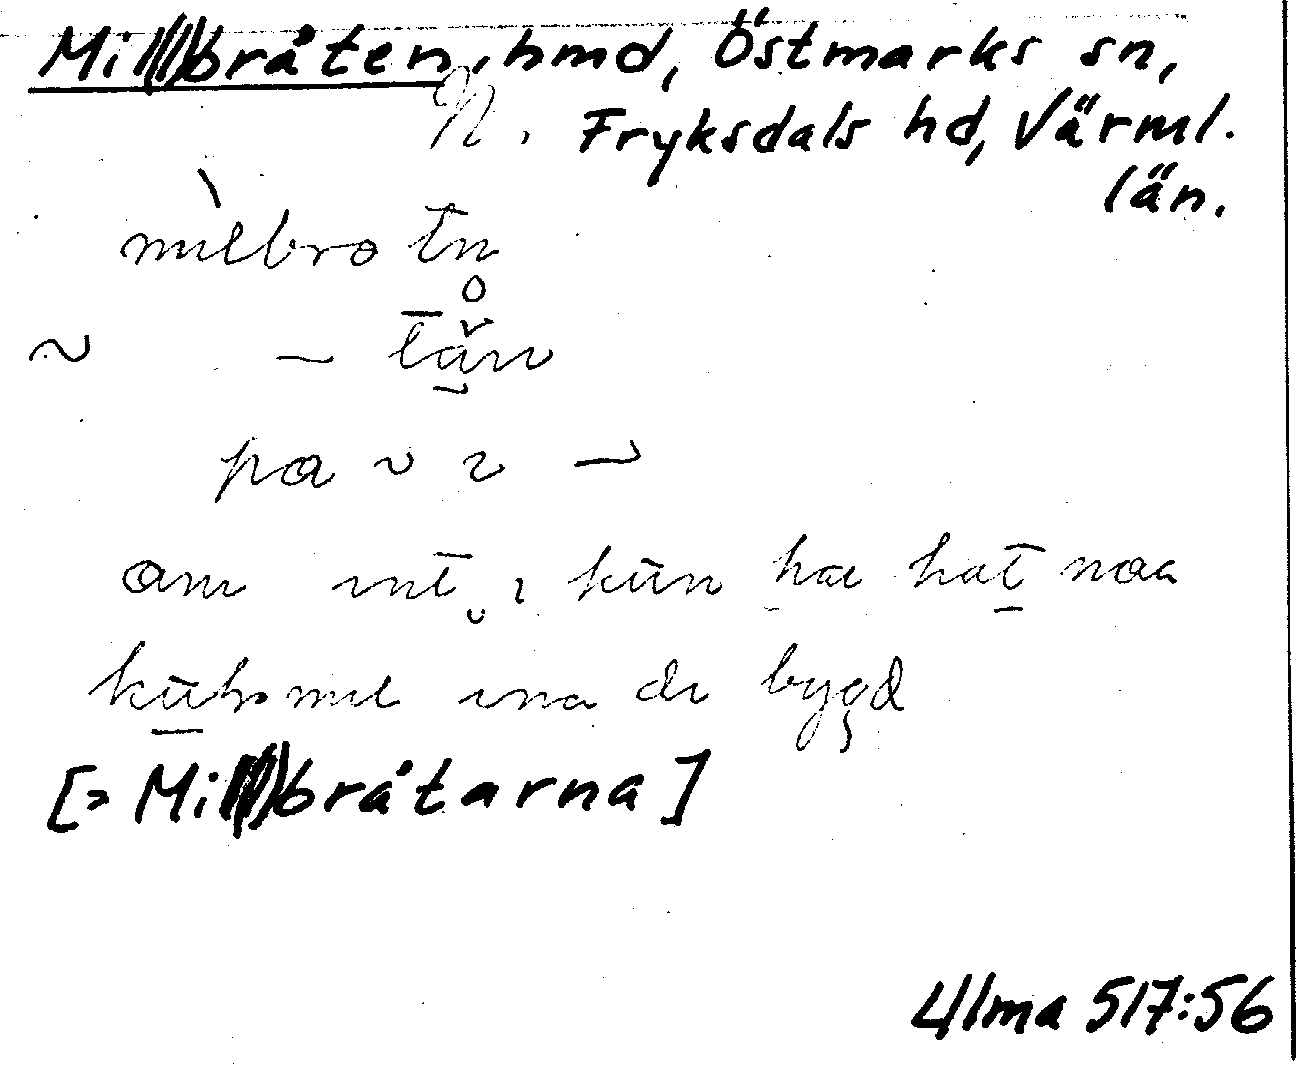 Milbråten, hmd, Östmarks sn,
N. Fryksdals hd, Värml.
län.
milbrotn̥
~ – tăn
pa ~ 2 –
am int kun ha hat noa
mil ina di bygd
[= Milbråtarna]
Ulma 517:56